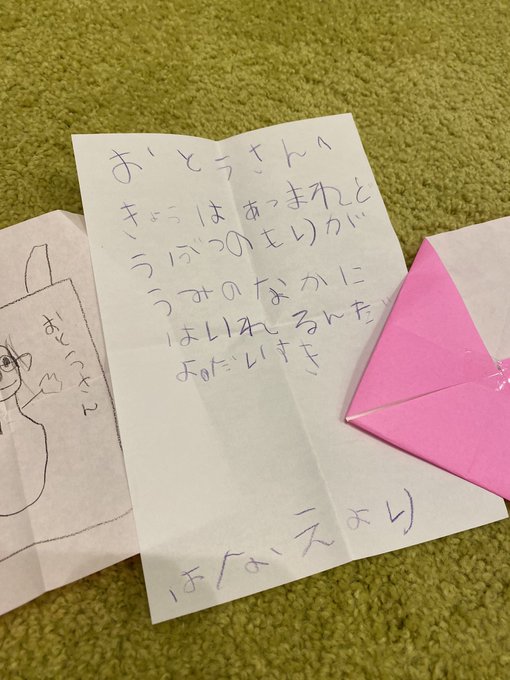 おとうさんへ
きょうはあつまれど
うぶつのもりが
うみのなかに
はいれるんだ
よ。だいすき
はなえより
おとうさん